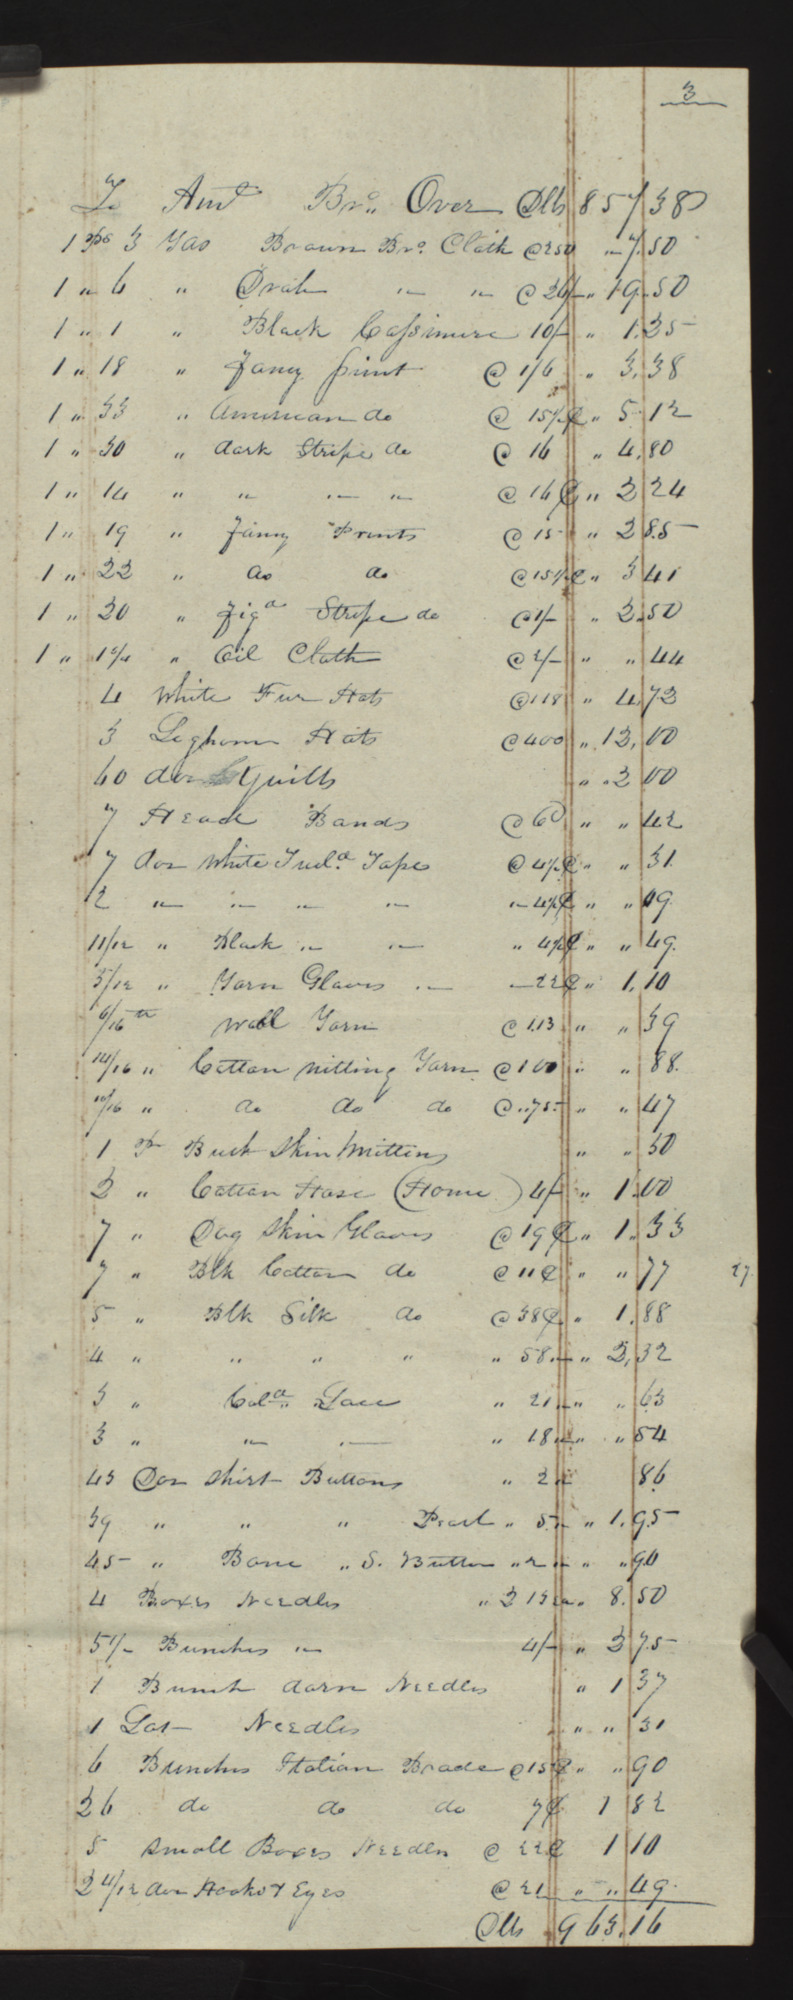 3
To Amt Bro. Over Dlls 857 38
1 ps 3 Yds Brown Bro. Cloth @ 250 " 7.50
1 " 6 " Drab " " @ 26/- " 19.50
1 " 1 " Black Cassimere 10/- " 1.25
1 " 18 " Fancy print @ 1/6 " 3.38
1 " 33 " American do @ 15½¢ " 5.12
1 " 30 " dark Stripe do @ 16 " 4.80
1 " 14 " " " " @ 16¢ " 2 24
1 " 19 " Fancy Prints @ 15 " 2 85
1 " 22 " do do @ 15½¢ " 3 41
1 " 20 " Figd Stripe do @ 1/- " 2.50
1 " 1¾ " Oil Cloth @ 2/- " " 44
4 White Fur Hats @ 118 " 4.72
3 Leghorn Hats @ 400 " 12,00
60 doz Quills " " 3 00
7 Head Bands @ 6 " " 42
7 doz White Twild Tape @ 4½¢ " " 31
2 " " " " " " 4½¢ " " 09
11/12 " Black " " " 4½¢ " " 49
5/12 " Yarn Gloves " " 22¢ " 1.10
6/16th Woll Yarn @ 1.13 " " 39
14/16 " Cotton nitting Yarn @ 1 00 " " 88
10/16 " do do do @ " 75 " " 47
1 Pr Buck Skin Mittins " " 50
2 " Cotton Hose (Home) 4/- " 1.00
7 " Dog Skin Gloves @ 19¢ " 1.33
7 " Blk Cotton do @ 11¢ " " 77 27
5 " Blk Silk do @ 38¢ " 1.88
4 " " " " " 58 " " 2,32
3 " Cold Lace " 21 " " " 63
3 " " " " 18 " " " 54
43 Doz Shirt Buttons " 2 " 86
39 " " " Pearl " 5 " " 1.95
45 " Bone " S. Button " 2 " " " 90
4 Boxes Needles " 2 13 " 8.50
5½ Bunches " 4/- " 2 75
1 Bunch darn Needles " 1 37
1 Lot Needles " " 31
6 Bunches Italian Brade @ 15¢ " " 90
26 do do do 7¢ 1 82
5 Small Boxes Needles @ 22¢ 1 10
2 4/12 doz Hooks & Eyes @ 21 " " 49
Dlls 963.16